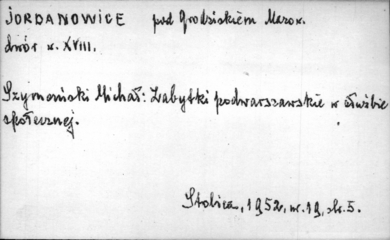 JORDANOWICE pod Grodziskiem Mazow.
dwór w. XVIII.
Szymański Michał: Zabytki podwarszawskie w służbie
społecznej.
Stolica, 1952, nr. 19, str. 5.